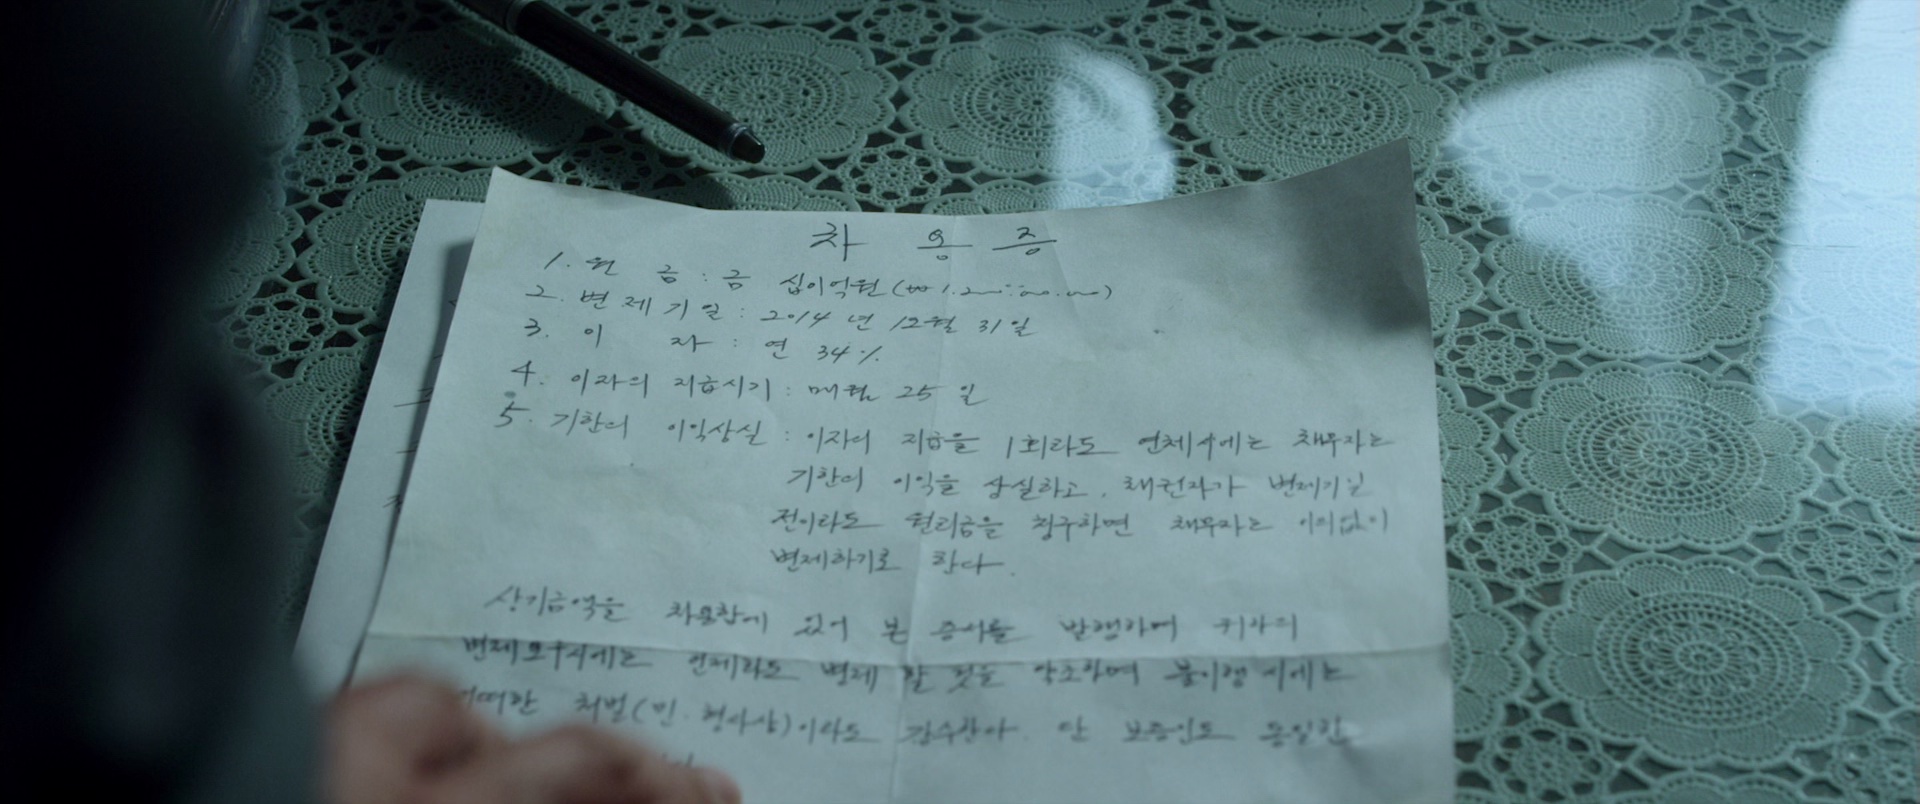 차 용 증
1. 원 금 : 금 십이억원 (₩1.200.000.000)
2. 변제기일 : 2014년 12월 31일
3. 이 자 : 연 34%
4. 이자의 지급시기 : 매월 25일
5. 기한의 이익상실 : 이자의 지급을 1회라도 연체시에는 채무자는
기한의 이익을 상실하고, 채권자가 변제기일
전이라도 원리금을 청구하면 채무자는 이의없이
변제하기로 한다.
상기금액을 차용함에 있어 본 증서를 발행하며 귀하의
변제요구시에는 언제라도 변제 할 것을 약조하며 불이행 시에는
처벌(민·형사상)이라도 감수한다. 단 보증인도 동일한